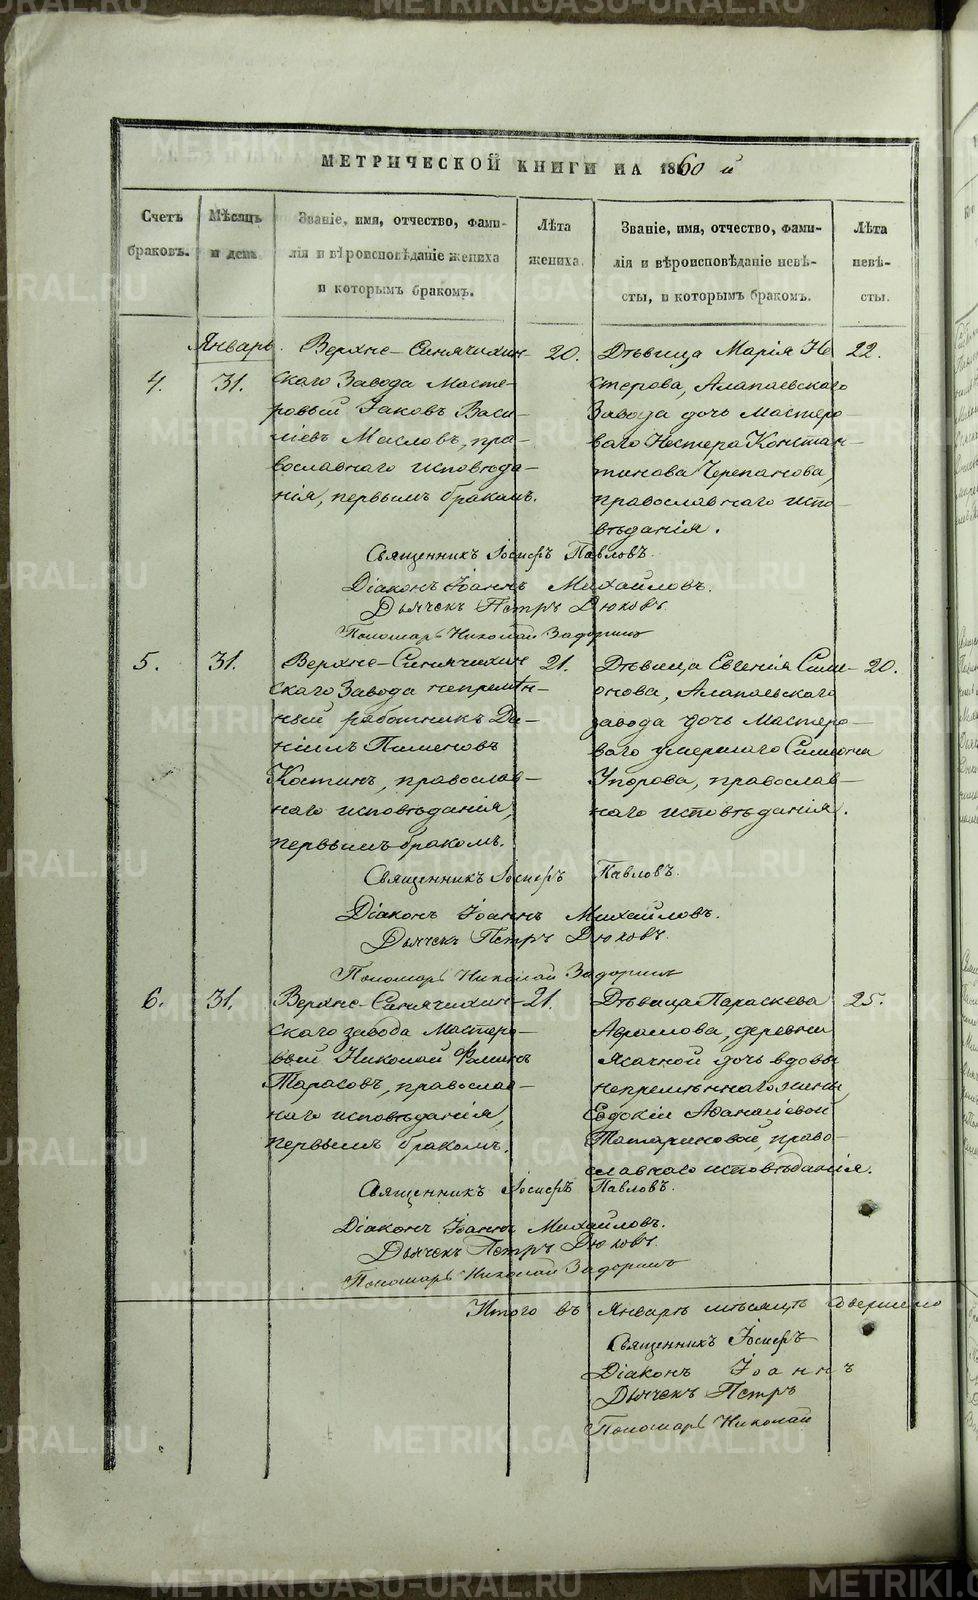 МЕТРИЧЕСКОЙ КНИГИ НА 1860 й
Счетъ браковъ.
Мѣсяцъ и день
Званіе, имя, отчество, фами-
лія и вѣроисповѣданіе жениха
и которымъ бракомъ.
Лѣта жениха.
Званіе, имя, отчество, фами-
лія и вѣроисповѣданіе невѣ-
сты, и которымъ бракомъ.
Лѣта невѣ-
сты.
Январь.
4.
31.
Верхне-Синячихин-
скаго Завода Масте-
ровый Іаковъ Васи-
ліевъ Масловъ, пра-
вославнаго исповѣда-
нія, первымъ бракомъ.
20.
Дѣвица Марія Не
стерова, Алапаевскаго
Завода дочь мастеро-
ваго Нестера Констан-
тинова Черепанова,
православнаго испо-
вѣданія.
22.
Священникъ Іосифъ Павловъ.
Діаконъ Іоаннъ Михайловъ.
Дьячекъ Петръ Дюковъ
Пономарь Николай Задоринъ
5.
31.
Верхне-Синячихин
скаго Завода непремѣн-
ный работникъ Да-
ніилъ Пименовъ
Костинъ, православ-
наго исповѣданія,
первымъ бракомъ.
21.
Дѣвица Евгенія Сими-
онова, Алапаевскаго
завода дочь мастеро-
ваго умершаго Симиона
Упорова, православ-
наго исповѣданія.
20.
Священникъ Іосифъ Павловъ.
Діаконъ Іоаннъ Михайловъ.
Дьячекъ Петръ Дюковъ.
Пономарь Николай Задоринъ
6.
31.
Верхне-Синячихин-
скаго завода мастеро-
вый Николай Фокинъ
Тарасовъ, православ-
наго исповѣданія,
первымъ бракомъ.
21.
Дѣвица Параскева
Аврамова, деревни
Ясачной дочь вдовы
непремѣннаго жены
Евдокіи Аѳанасіевой
Татариновой, право-
славнаго исповѣданія.
25.
Священникъ Іосифъ Павловъ.
Діаконъ Іоаннъ Михайловъ.
Дьячекъ Петръ Дюковъ.
Пономарь Николай Задоринъ
Итого въ Январѣ мѣсяцѣ совершено
Священникъ Іосифъ
Діаконъ Іоаннъ
Дьячекъ Петръ
Пономарь Николай
METRIKI.GASO-URAL.RU